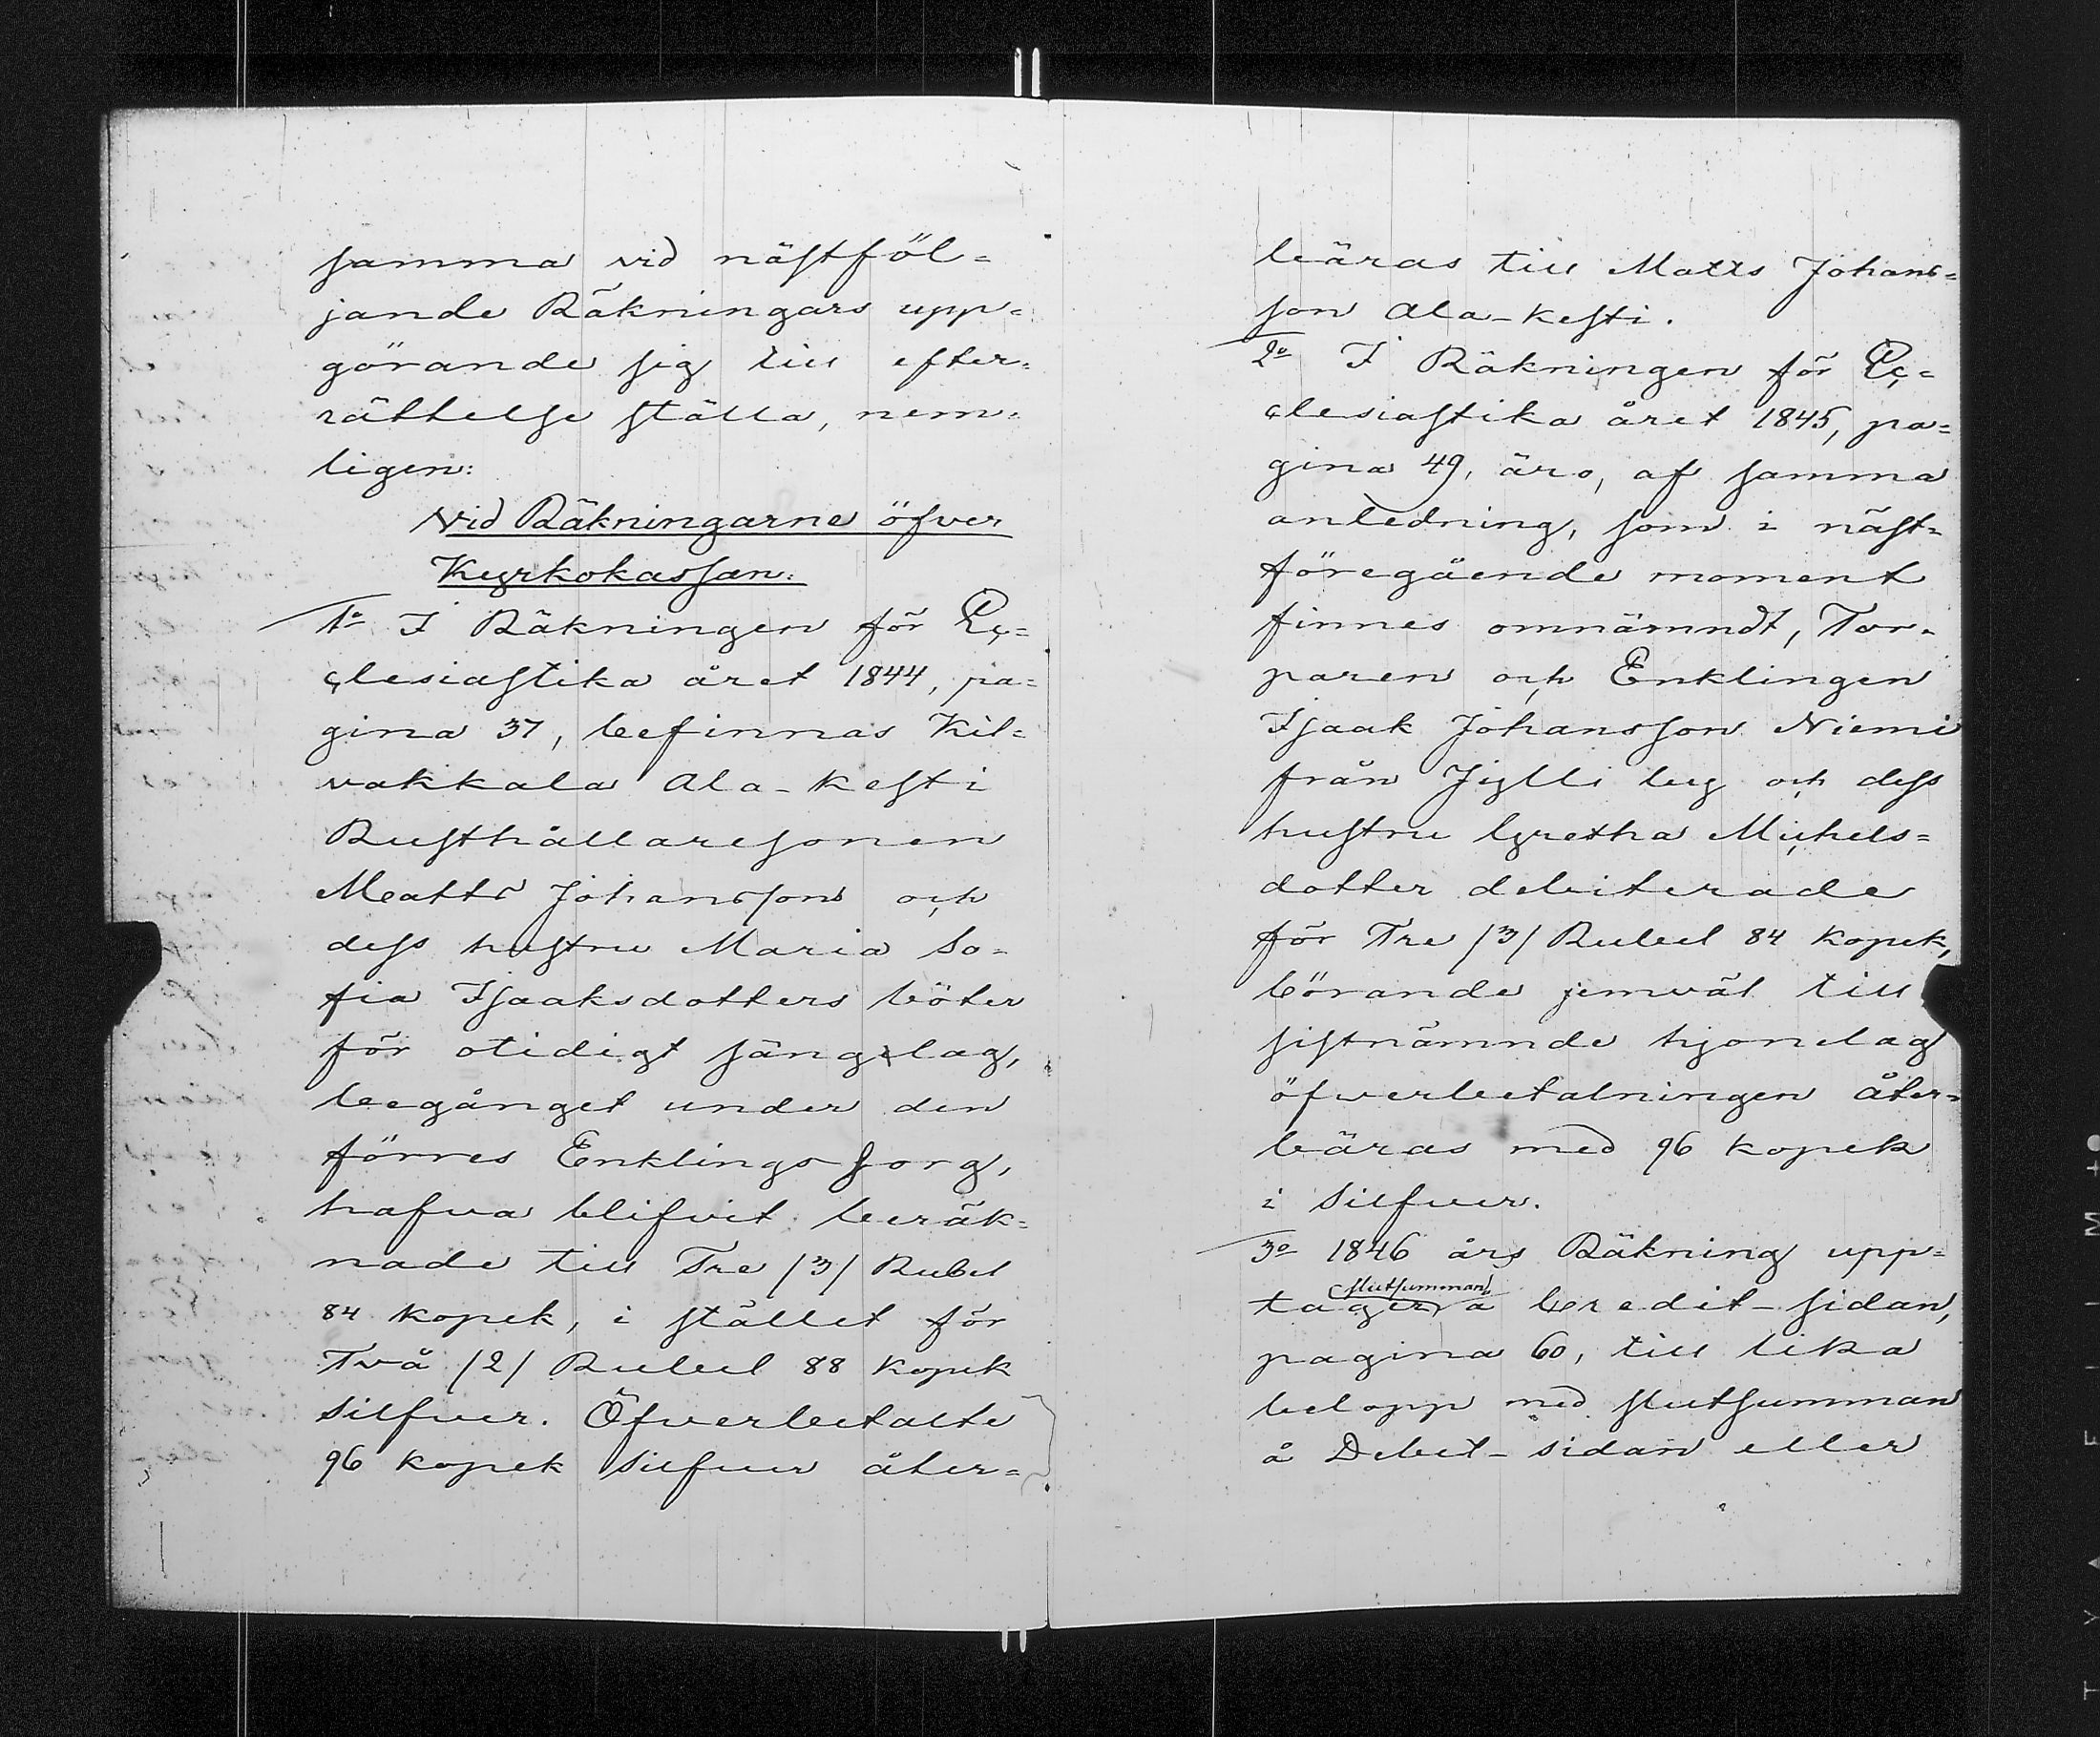 samma vid nästföl=
jande Räkningars upp=
görande sig till efter=
rättelse ställa, nem=
ligen:
Vid Räkningarne öfver
Kyrkokassan:
1o I Räkningen för Ec=
clesiastika året 1844, pa=
gina 37, befinnas Kil=
vakkala Ala-Kesti
Rusthållaresonen
Matts Johanssons och
dess hustru Maria So=
fia Isaaksdotters böter
för otidigt sängelag,
begånget under den
förres Enklings sorg,
hafva blifvit beräk=
nade till Tre /3/ Rubel
84 kopek, i stället för
Två /2/ Rubel 88 kopek
Silfver. Öfverbetalte
96 kopek Silfver åter=
bäras till Matts Johans=
son Ala-Kesti.
2o I Räkningen för Ec=
clesiastika året 1845, pa=
gina 49, äro, af samma
anledning, som i näst=
föregående moment
finnes omnämndt, Tor=
paren och Enklingen
Isaak Johansson Niemi
från Jylli by och dess
hustru Gretha Michels=
dotter debiterade
för Tre /3/ Rubel 84 kopek,
börande jemväl till
sistnämnde hjonelag
öfverbetalningen åter=
bäras med 96 kopek
i Silfver.
3o 1846 års Räkning upp=
slutsumman
tager å Credit-sidan,
pagina 60, till lika
belopp med slutsumman
å Debet-sidan eller
TYA FILMI